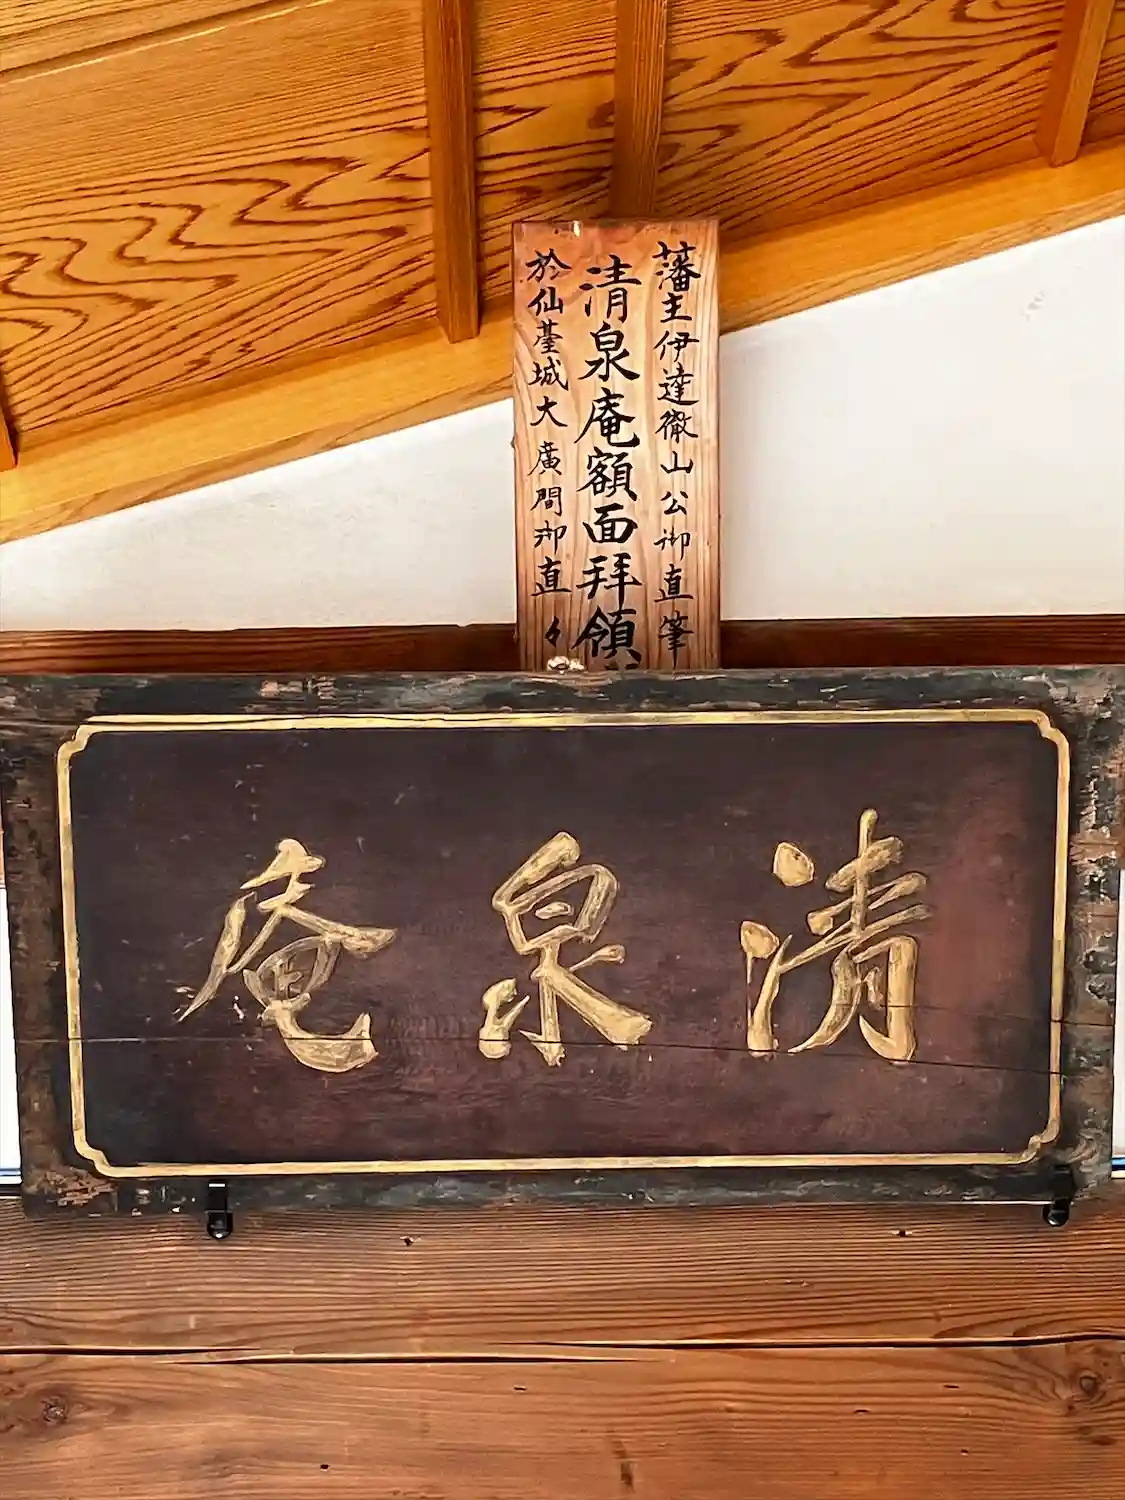 藩主伊達徹山公御直筆
清泉庵額面拝領
於仙䑓城大廣間御直々
清泉庵